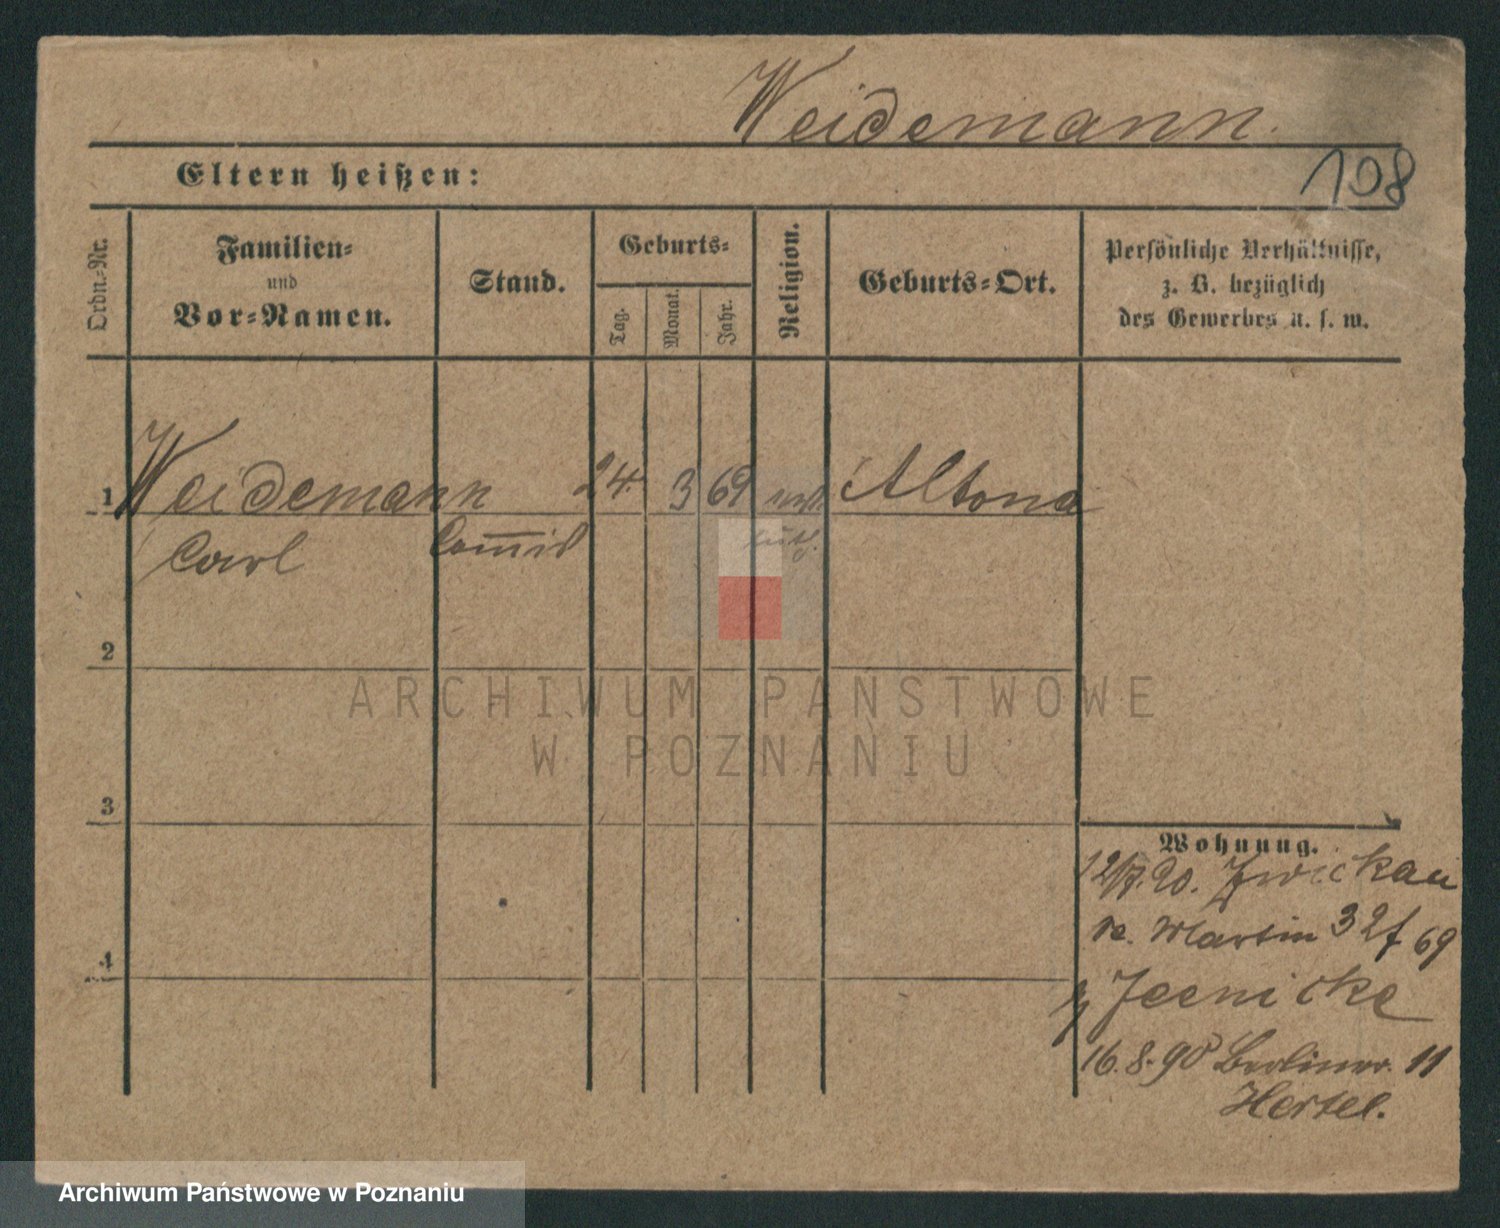 Weidemann.
Eltern heißen:
108
Ordn.-Nr.
Familien-
und
Vor-Namen.
Stand.
Geburts-
Tag.
Monat.
Jahr.
Religion.
Geburts-Ort.
Persönliche Verhältnisse,
z. B. bezüglich
des Gewerbes u. s. w.
1 Weidemann 24. 3 69 Altona
Carl Com̅is
2
3
4
Wohnung.
Zwickau
Martin 32 69
Jeenicke
16.8.90 Berliner. 11
Hertel.
ARCHIWUM PAŃSTWOWE
W POZNANIU
Archiwum Państwowe w Poznaniu